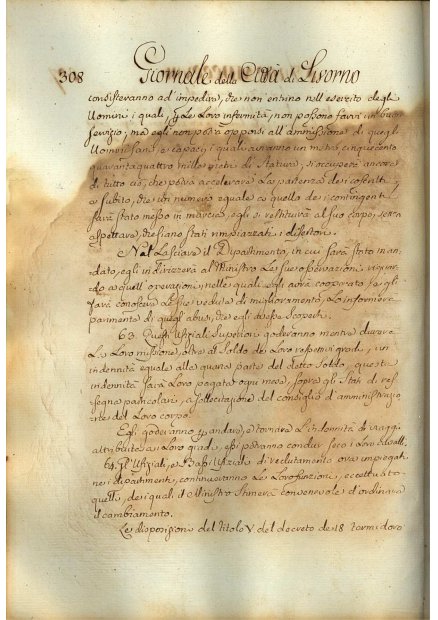 308 Giornale della Città di Livorno
consisteranno ad impedire, che non entrino nell esercito degli
Uomini i quali, p le Loro infermità, non possono farvi un buon
servizio, ma egli non potrà opporsi all ammissione di quegli
Uomini sani, e capaci i quali avranno un metro, cinquecento
quarantaquattro mille metri di Statura, si occuperà ancora
di tutto ciò, che potrà accelerare La partenza dei coscritti,
e subito, che un numero eguale a quello dei contingenti
sarà stato messo in marcia, egli si restituirà al suo corpo, senza
aspettare, che siano stati rimpiazzati i disertori.
Nel Lasciare il Dipartimento, in cui sarà stato man
dato, egli indirizzerà al Ministro Le sue osservazioni riguar
do a quell operazioni, nelle quali egli avrà cooperato, se gli
farà conoscere Le sue vedute di miglioramento, Lo informerà
parimente di quegl abusi, che egli avesse scoperti.
63. Questi Ufiziali Superiori goderanno mentre durerà
La Loro missione, oltre al Soldo dei Loro respettivi gradi, un
indennità eguale alla quarta parte del detto Soldo, questa
indennità sarà Loro pagata ogni mese, sopra gli Stati di ras
segna particolari, a sollecitazione del consiglio d amministrazio
ne del Loro corpo.
Egli goderanno p andare, e tornare L indennità di viaggio
attribuita ai Loro gradi, essi potranno condur seco i Loro cavalli.
64. Gl Ufiziali, e Bassi Ufiziali di reclutamento ora impiegati
nei dipartimenti, continueranno Le Loro funzioni, eccettuato
quelli, dei quali il Ministro stimerà convenevole d ordinare
il cambiamento.
Le disposizioni del titolo V. del decreto de 18 termidoro